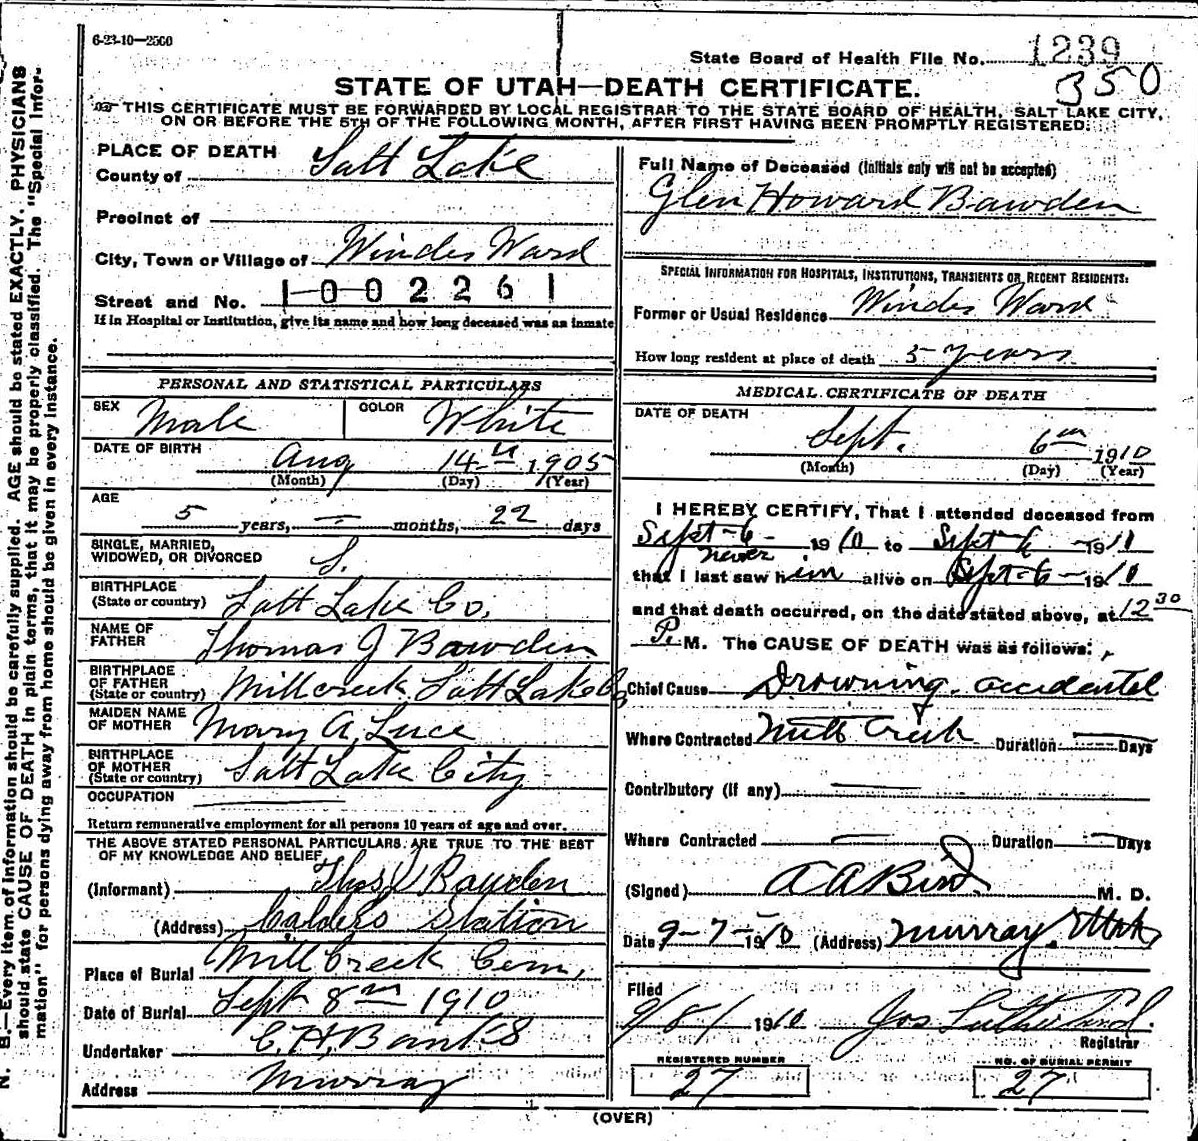 6-23-10—2500
State Board of Health File No. 1239
350
STATE OF UTAH—DEATH CERTIFICATE.
THIS CERTIFICATE MUST BE FORWARDED BY LOCAL REGISTRAR TO THE STATE BOARD OF HEALTH, SALT LAKE CITY,
ON OR BEFORE THE 5TH OF THE FOLLOWING MONTH, AFTER FIRST HAVING BEEN PROMPTLY REGISTERED.
PLACE OF DEATH
County of Salt Lake
Precinct of
City, Town or Village of Winder Ward
Street and No. 1002261
If in Hospital or Institution, give its name and how long deceased was an inmate
PERSONAL AND STATISTICAL PARTICULARS
SEX Male COLOR White
DATE OF BIRTH Aug 14th 1905
(Month) (Day) (Year)
AGE
5 years, — months, 22 days
SINGLE, MARRIED,
WIDOWED, OR DIVORCED S.
BIRTHPLACE
(State or country) Salt Lake Co.
NAME OF
FATHER Thomas J Bawden
BIRTHPLACE
OF FATHER
(State or country) Millcreek Salt Lake Co
MAIDEN NAME
OF MOTHER Mary A. Luce
BIRTHPLACE
OF MOTHER
(State or country) Salt Lake City
OCCUPATION
Return remunerative employment for all persons 10 years of age and over.
THE ABOVE STATED PERSONAL PARTICULARS ARE TRUE TO THE BEST
OF MY KNOWLEDGE AND BELIEF
(Informant) Thos J Bawden
(Address) Calders Station
Place of Burial Mill Creek Cem,
Date of Burial Sept 8th 1910
Undertaker C. H. Banks
Address Murray
Full Name of Deceased (Initials only will not be accepted)
Glen Howard Bawden
SPECIAL INFORMATION FOR HOSPITALS, INSTITUTIONS, TRANSIENTS OR RECENT RESIDENTS:
Former or Usual Residence Winder Ward
How long resident at place of death 5 years
MEDICAL CERTIFICATE OF DEATH
DATE OF DEATH
Sept. 6th 1910
(Month) (Day) (Year)
I HEREBY CERTIFY, That I attended deceased from
Sept-6- 1910 to Sept-6 -1910
never
that I last saw him alive on Sept-6- 1910
and that death occurred, on the date stated above, at 12 30
P. M. The CAUSE OF DEATH was as follows:
Chief Cause Drowning. accidental
Where Contracted Mill Creek Duration — Days
Contributory (if any) —
Where Contracted — Duration — Days
(Signed) A A Bird M. D.
Date 9-7-1910 (Address) Murray Utah
Filed
9/8/ 1910 Jos Sutherland.
Registrar
REGISTERED NUMBER NO. OF BURIAL PERMIT
27 27
(OVER)
N. B.—Every item of information should be carefully supplied. AGE should be stated EXACTLY. PHYSICIANS
should state CAUSE OF DEATH in plain terms, that it may be properly classified. The "Special Infor-
mation" for persons dying away from home should be given in every instance.